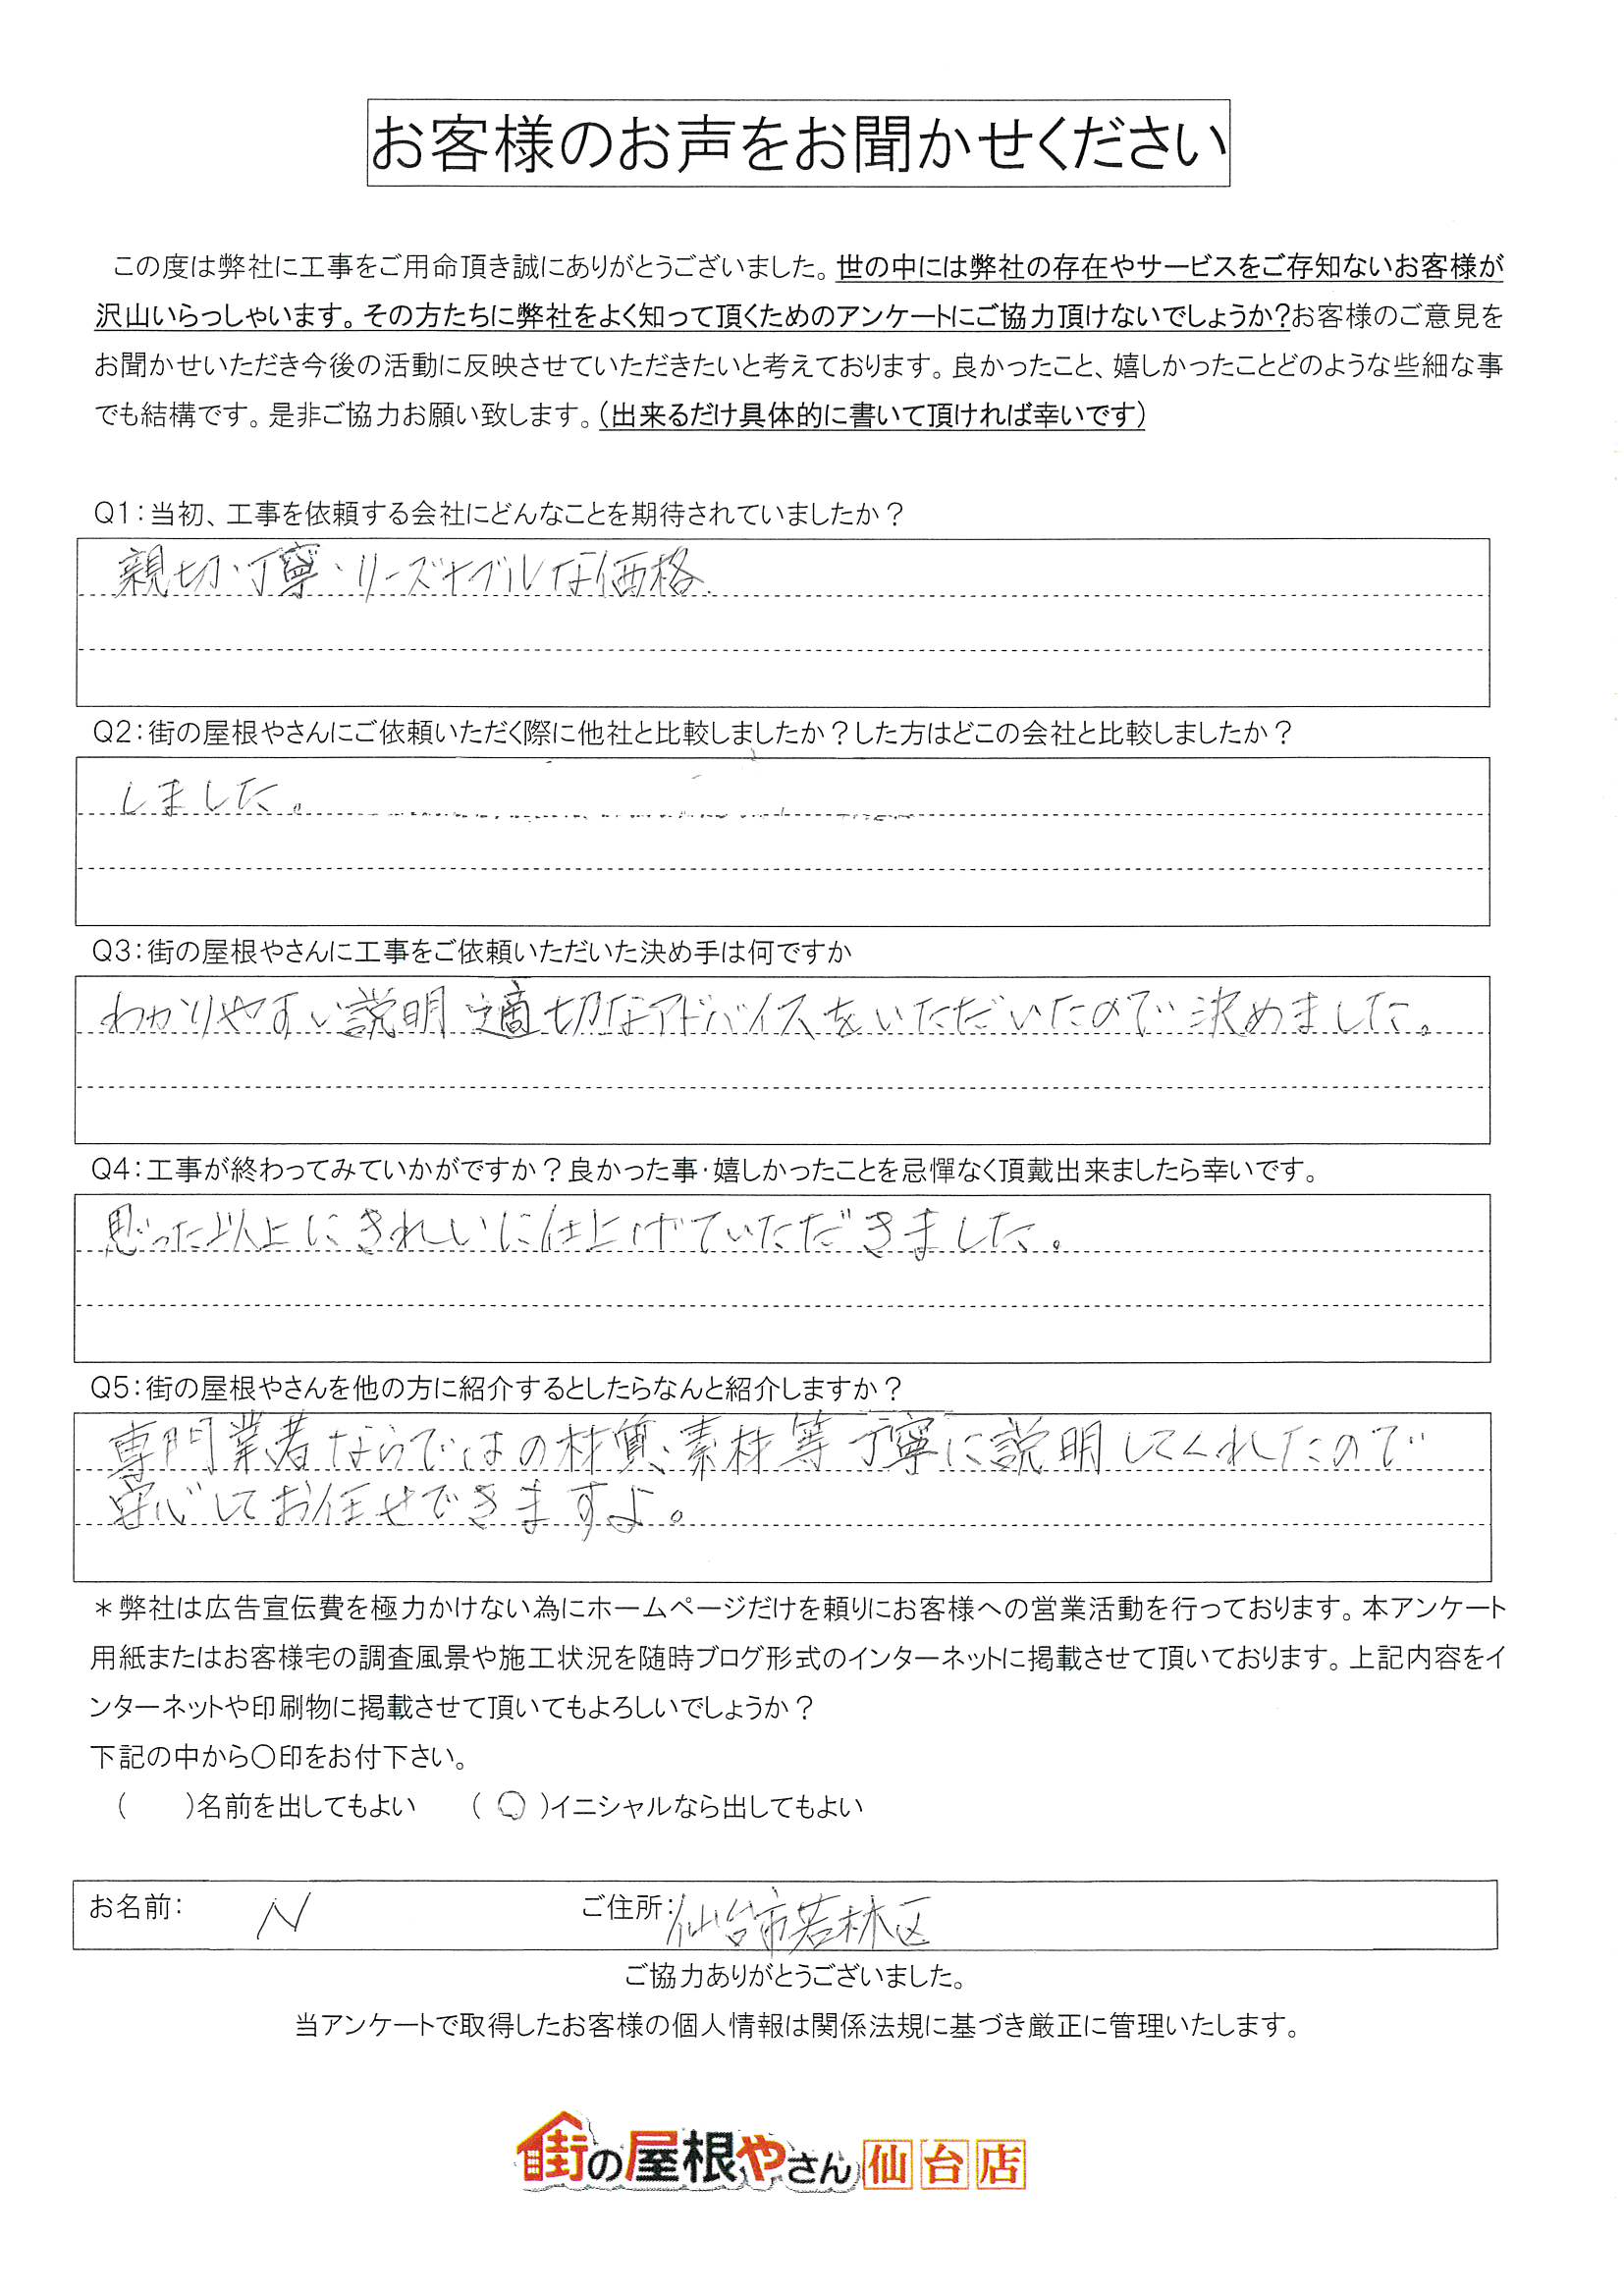 お客様のお声をお聞かせください
この度は弊社に工事をご用命頂き誠にありがとうございました。世の中には弊社の存在やサービスをご存知ないお客様が
沢山いらっしゃいます。その方たちに弊社をよく知って頂くためのアンケートにご協力頂けないでしょうか?お客様のご意見を
お聞かせいただき今後の活動に反映させていただきたいと考えております。良かったこと、嬉しかったことどのような些細な事
でも結構です。是非ご協力お願い致します。(出来るだけ具体的に書いて頂ければ幸いです)
Q1:当初、工事を依頼する会社にどんなことを期待されていましたか?
親切・丁寧・リーズナブルな価格.
Q2:街の屋根やさんにご依頼いただく際に他社と比較しましたか?した方はどこの会社と比較しましたか?
しました。
Q3:街の屋根やさんに工事をご依頼いただいた決め手は何ですか
わかりやすい説明 適切なアドバイスをいただいたので決めました。
Q4:工事が終わってみていかがですか?良かった事・嬉しかったことを忌憚なく頂戴出来ましたら幸いです。
思った以上にきれいに仕上げていただきました。
Q5:街の屋根やさんを他の方に紹介するとしたらなんと紹介しますか?
専門業者ならではの材質、素材等丁寧に説明してくれたので
安心してお任せできますよ。
*弊社は広告宣伝費を極力かけない為にホームページだけを頼りにお客様への営業活動を行っております。本アンケート
用紙またはお客様宅の調査風景や施工状況を随時ブログ形式のインターネットに掲載させて頂いております。上記内容をイ
ンターネットや印刷物に掲載させて頂いてもよろしいでしょうか?
下記の中から○印をお付下さい。
( )名前を出してもよい (○)イニシャルなら出してもよい
お名前: N ご住所:仙台市若林区
ご協力ありがとうございました。
当アンケートで取得したお客様の個人情報は関係法規に基づき厳正に管理いたします。
街の屋根やさん仙台店